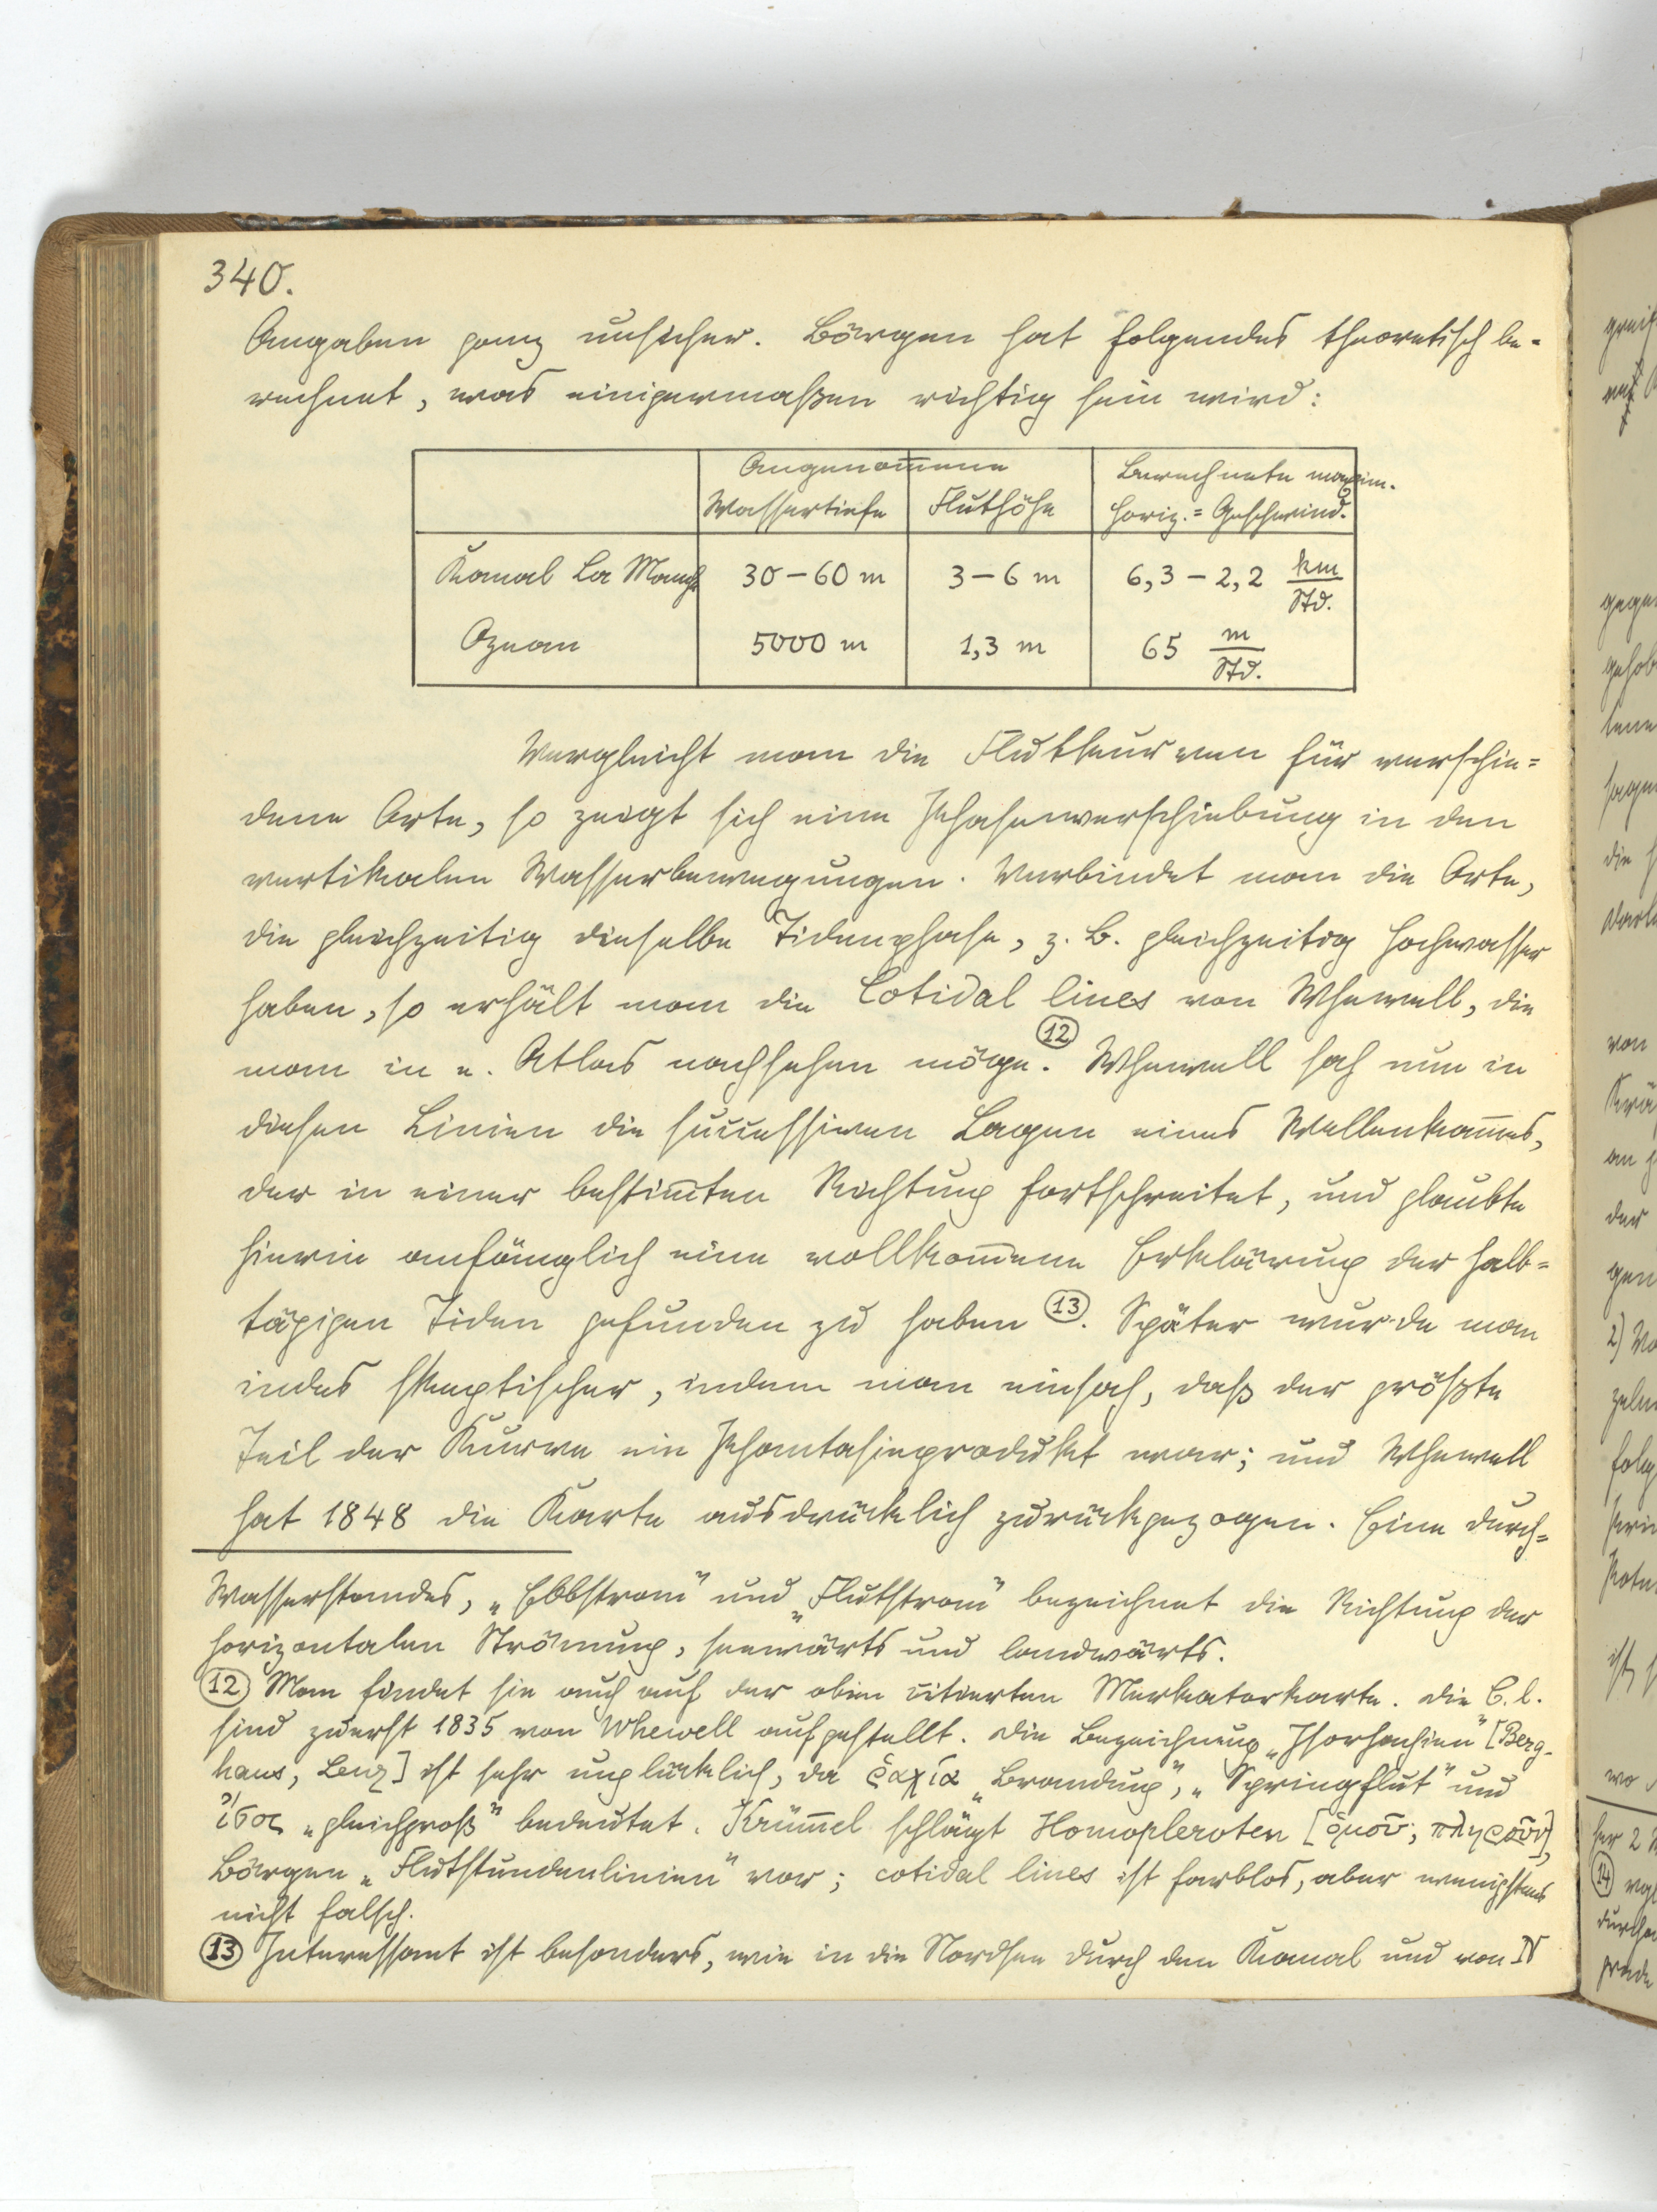 340.
Angaben ganz unsicher. Börgen hat folgendes theoretisch be-
rechnet, was einigermaßen richtig sein wird:
Angenom̅ene Berechnete maxim.
Wassertiefe Fluthöhe horiz.=Geschwind.
Kanal La Manche 30–60 m 3–6 m 6,3–2,2 km/Std.
Ozean 5000 m 1,3 m 65 m/Std.
Vergleicht man die Flutkurven für verschie=
dene Orte, so zeigt sich eine Phasenverschiebung in den
vertikalen Wasserbewegungen. Verbindet man die Orte,
die gleichzeitig dieselbe Tidenphase, z. B. gleichzeitig Hochwasser
haben, so erhält man die Cotidal lines von Whewell, die
man in e. Atlas nachsehen möge. (12) Whewell sah nun in
diesen Linien die successiven Lagen eines Wellenkam̅es,
der in einer bestim̅ten Richtung fortschreitet, und glaubte
hierin anfänglich eine vollkom̅ene Erklärung der halb=
tägigen Tiden gefunden zu haben (13). Später wurde man
indes skeptischer, indem man einsah, daß der größte
Teil der Kurve ein Phantasieprodukt war; und Whewell
hat 1848 die Karte ausdrücklich zurückgezogen. Eine durch=
Wasserstandes, „Ebbstrom" und „Flutstrom" bezeichnet die Richtung der
horizontalen Strömung, seewärts und landwärts.
(12) Man findet sie auch auf der oben citierten Merkatorkarte. Die C. l.
sind zuerst 1835 von Whewell aufgestellt. Die Bezeichnung „Isorhachien" [Berg-
haus, Lenz] ist sehr unglücklich, da ῥαχία „Brandung", „Springflut" und
ἴσος „gleichgroß" bedeutet. Krüm̅el schlägt Homopleroten [ὁμοῦ, πληροῦν],
Börgen „Flutstundenlinien" vor; cotidal lines ist farblos, aber wenigstens
nicht falsch.
(13) Interessant ist besonders, wie in die Nordsee durch den Kanal und von N